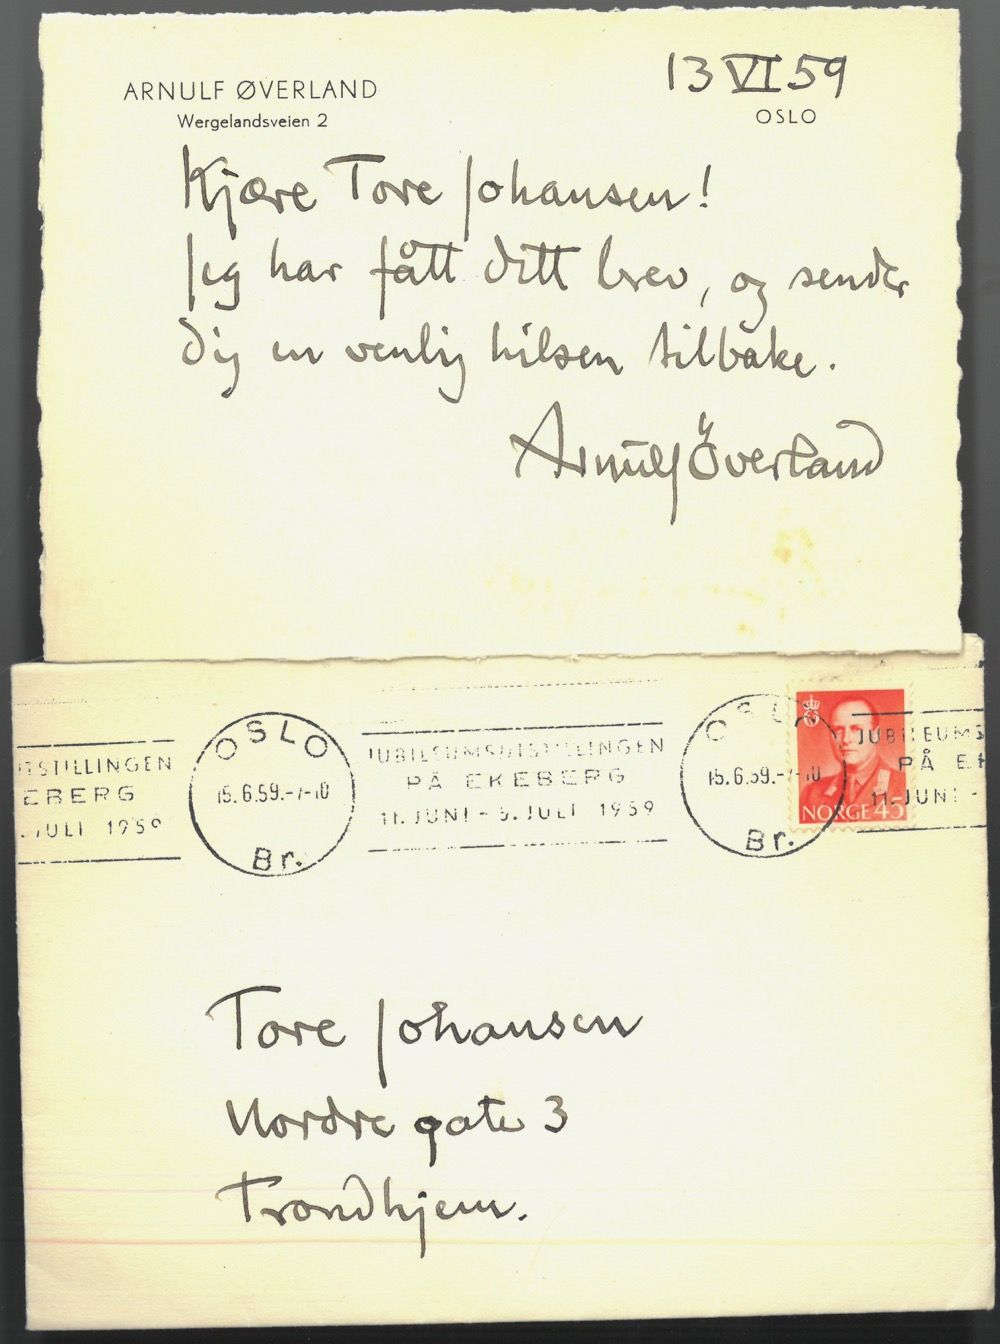 ARNULF ØVERLAND
Wergelandsveien 2
13 VI 59
OSLO
Kjære Tore Johansen!
Jeg har fått ditt brev, og sender
dig en venlig hilsen tilbake.
Arnulf Överland
OSLO
15.6.59.-7-10
Br.
TSTILLINGEN
EBERG
JULI 1959
JUBILEUMSUTSTILLINGEN
PÅ EKEBERG
11. JUNI - 5. JULI 1959
OSLO
15.6.59.-7-10
Br.
NORGE 45
JUBILEUMS
PÅ EK
11. JUNI -
Tore Johansen
Nordre gate 3
Trondhjem.